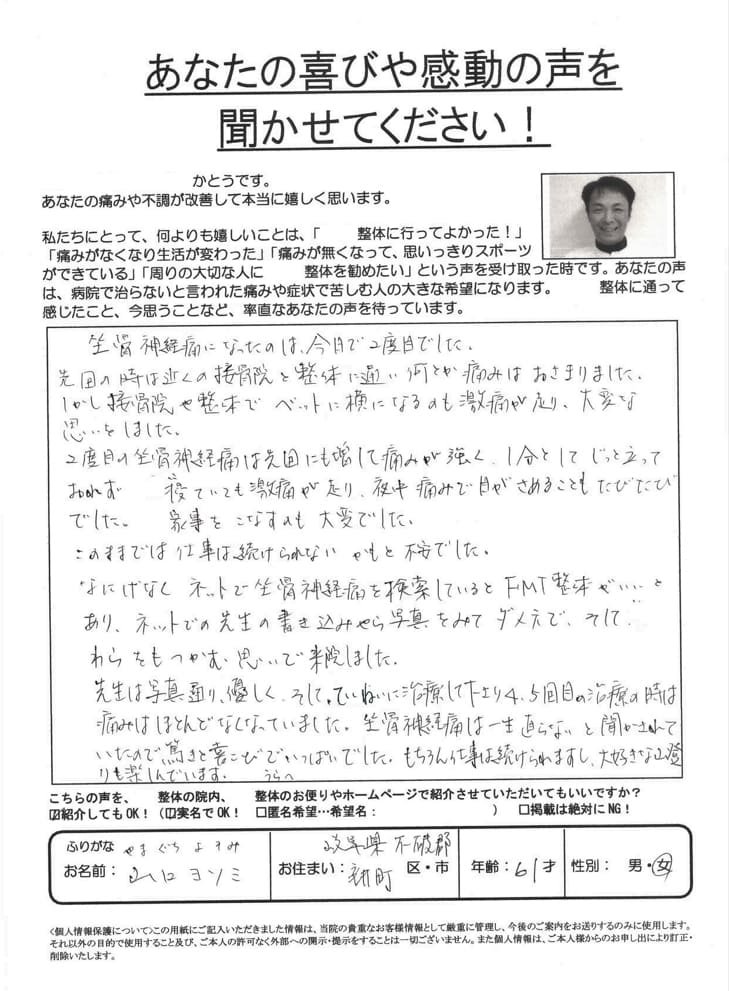 あなたの喜びや感動の声を
聞かせてください！
かとうです。
あなたの痛みや不調が改善して本当に嬉しく思います。
私たちにとって、何よりも嬉しいことは、「 整体に行ってよかった！」
「痛みがなくなり生活が変わった」「痛みが無くなって、思いっきりスポーツ
ができている」「周りの大切な人に 整体を勧めたい」という声を受け取った時です。あなたの声
は、病院で治らないと言われた痛みや症状で苦しむ人の大きな希望になります。 整体に通って
感じたこと、今思うことなど、率直なあなたの声を待っています。
坐骨神経痛になったのは、今回で2度目でした。
先回の時は近くの接骨院と整体に通い何とか痛みはおさまりました。
しかし接骨院や整体でベットに横になるのも激痛が走り、大変な
思いをしました。
2度目の坐骨神経痛は先回にも増して痛みが強く、1分としてじっと立って
おれず 寝ていても激痛が走り、夜中痛みで目がさめることもたびたび
でした。 家事をこなすのも大変でした。
このままでは仕事は続けられないかもと不安でした。
なにげなくネットで坐骨神経痛を検索しているとFMT整体がいいと
あり、ネットでの先生の書き込みやら写真をみてダメ元で、そして
わらをもつかむ思いで来院しました。
先生は写真通り、優しく、そして、ていねいに治療して下さり4、5回目の治療の時は
痛みはほとんどなくなっていました。坐骨神経痛は一生直らないと聞かされて
いたので驚きと喜こびでいっぱいでした。もちろん仕事は続けられますし、大好きな山登
りも楽しんでいます。 うらへ
こちらの声を、 整体の院内、 整体のお便りやホームページで紹介させていただいてもいいですか？
☑紹介してもOK！（☑実名でOK！ □匿名希望…希望名： ） □掲載は絶対にNG！
ふりがな やまぐち よそみ
お名前： 山口 ヨソミ
お住まい： 岐阜県 不破郡
垂井町 区・市
年齢：61才
性別： 男・女
<個人情報保護について>この用紙にご記入いただきました情報は、当院の貴重なお客様情報として厳重に管理し、今後のご案内をお送りするのみに使用します。
それ以外の目的で使用すること及び、ご本人の許可なく外部への開示・提示をすることは一切ございません。また個人情報は、ご本人様からのお申し出により訂正・
削除いたします。